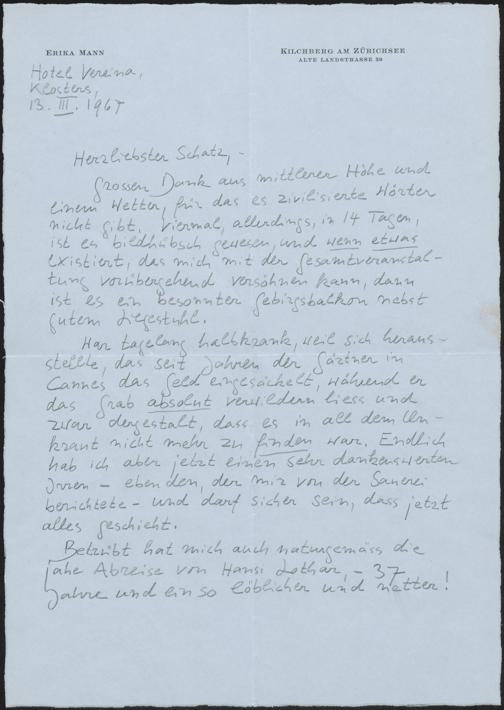 ERIKA MANN
KILCHBERG AM ZÜRICHSEE
ALTE LANDSTRASSE 39
Hotel Vereina,
Klosters,
13. III. 1967
Herzliebster Schatz, -
Grossen Dank aus mittlerer Höhe und
einem Wetter, für das es zivilisierte Wörter
nicht gibt. Viermal, allerdings, in 14 Tagen,
ist es bildhübsch gewesen, und wenn etwas
existiert, das mich mit der Gesamtveranstal-
tung vorübergehend versöhnen kann, dann
ist es ein besonnter Gebirgsbalkon nebst
gutem Liegestuhl.
War tagelang halbkrank, weil sich heraus-
stellte, das seit Jahren der Gärtner in
Cannes das Geld eingesäckelt, während er
das Grab absolut verwildern liess und
zwar dergestalt, dass es in all dem Un-
kraut nicht mehr zu finden war. Endlich
hab ich aber jetzt einen sehr dankenswerten
Irren - eben den, der mir von der Sauerei
berichtete - und darf sicher sein, dass jetzt
alles geschieht.
Betrübt hat mich auch naturgemäss die
jähe Abreise von Hansi Lothar, - 37
Jahre und ein so löblicher und netter!